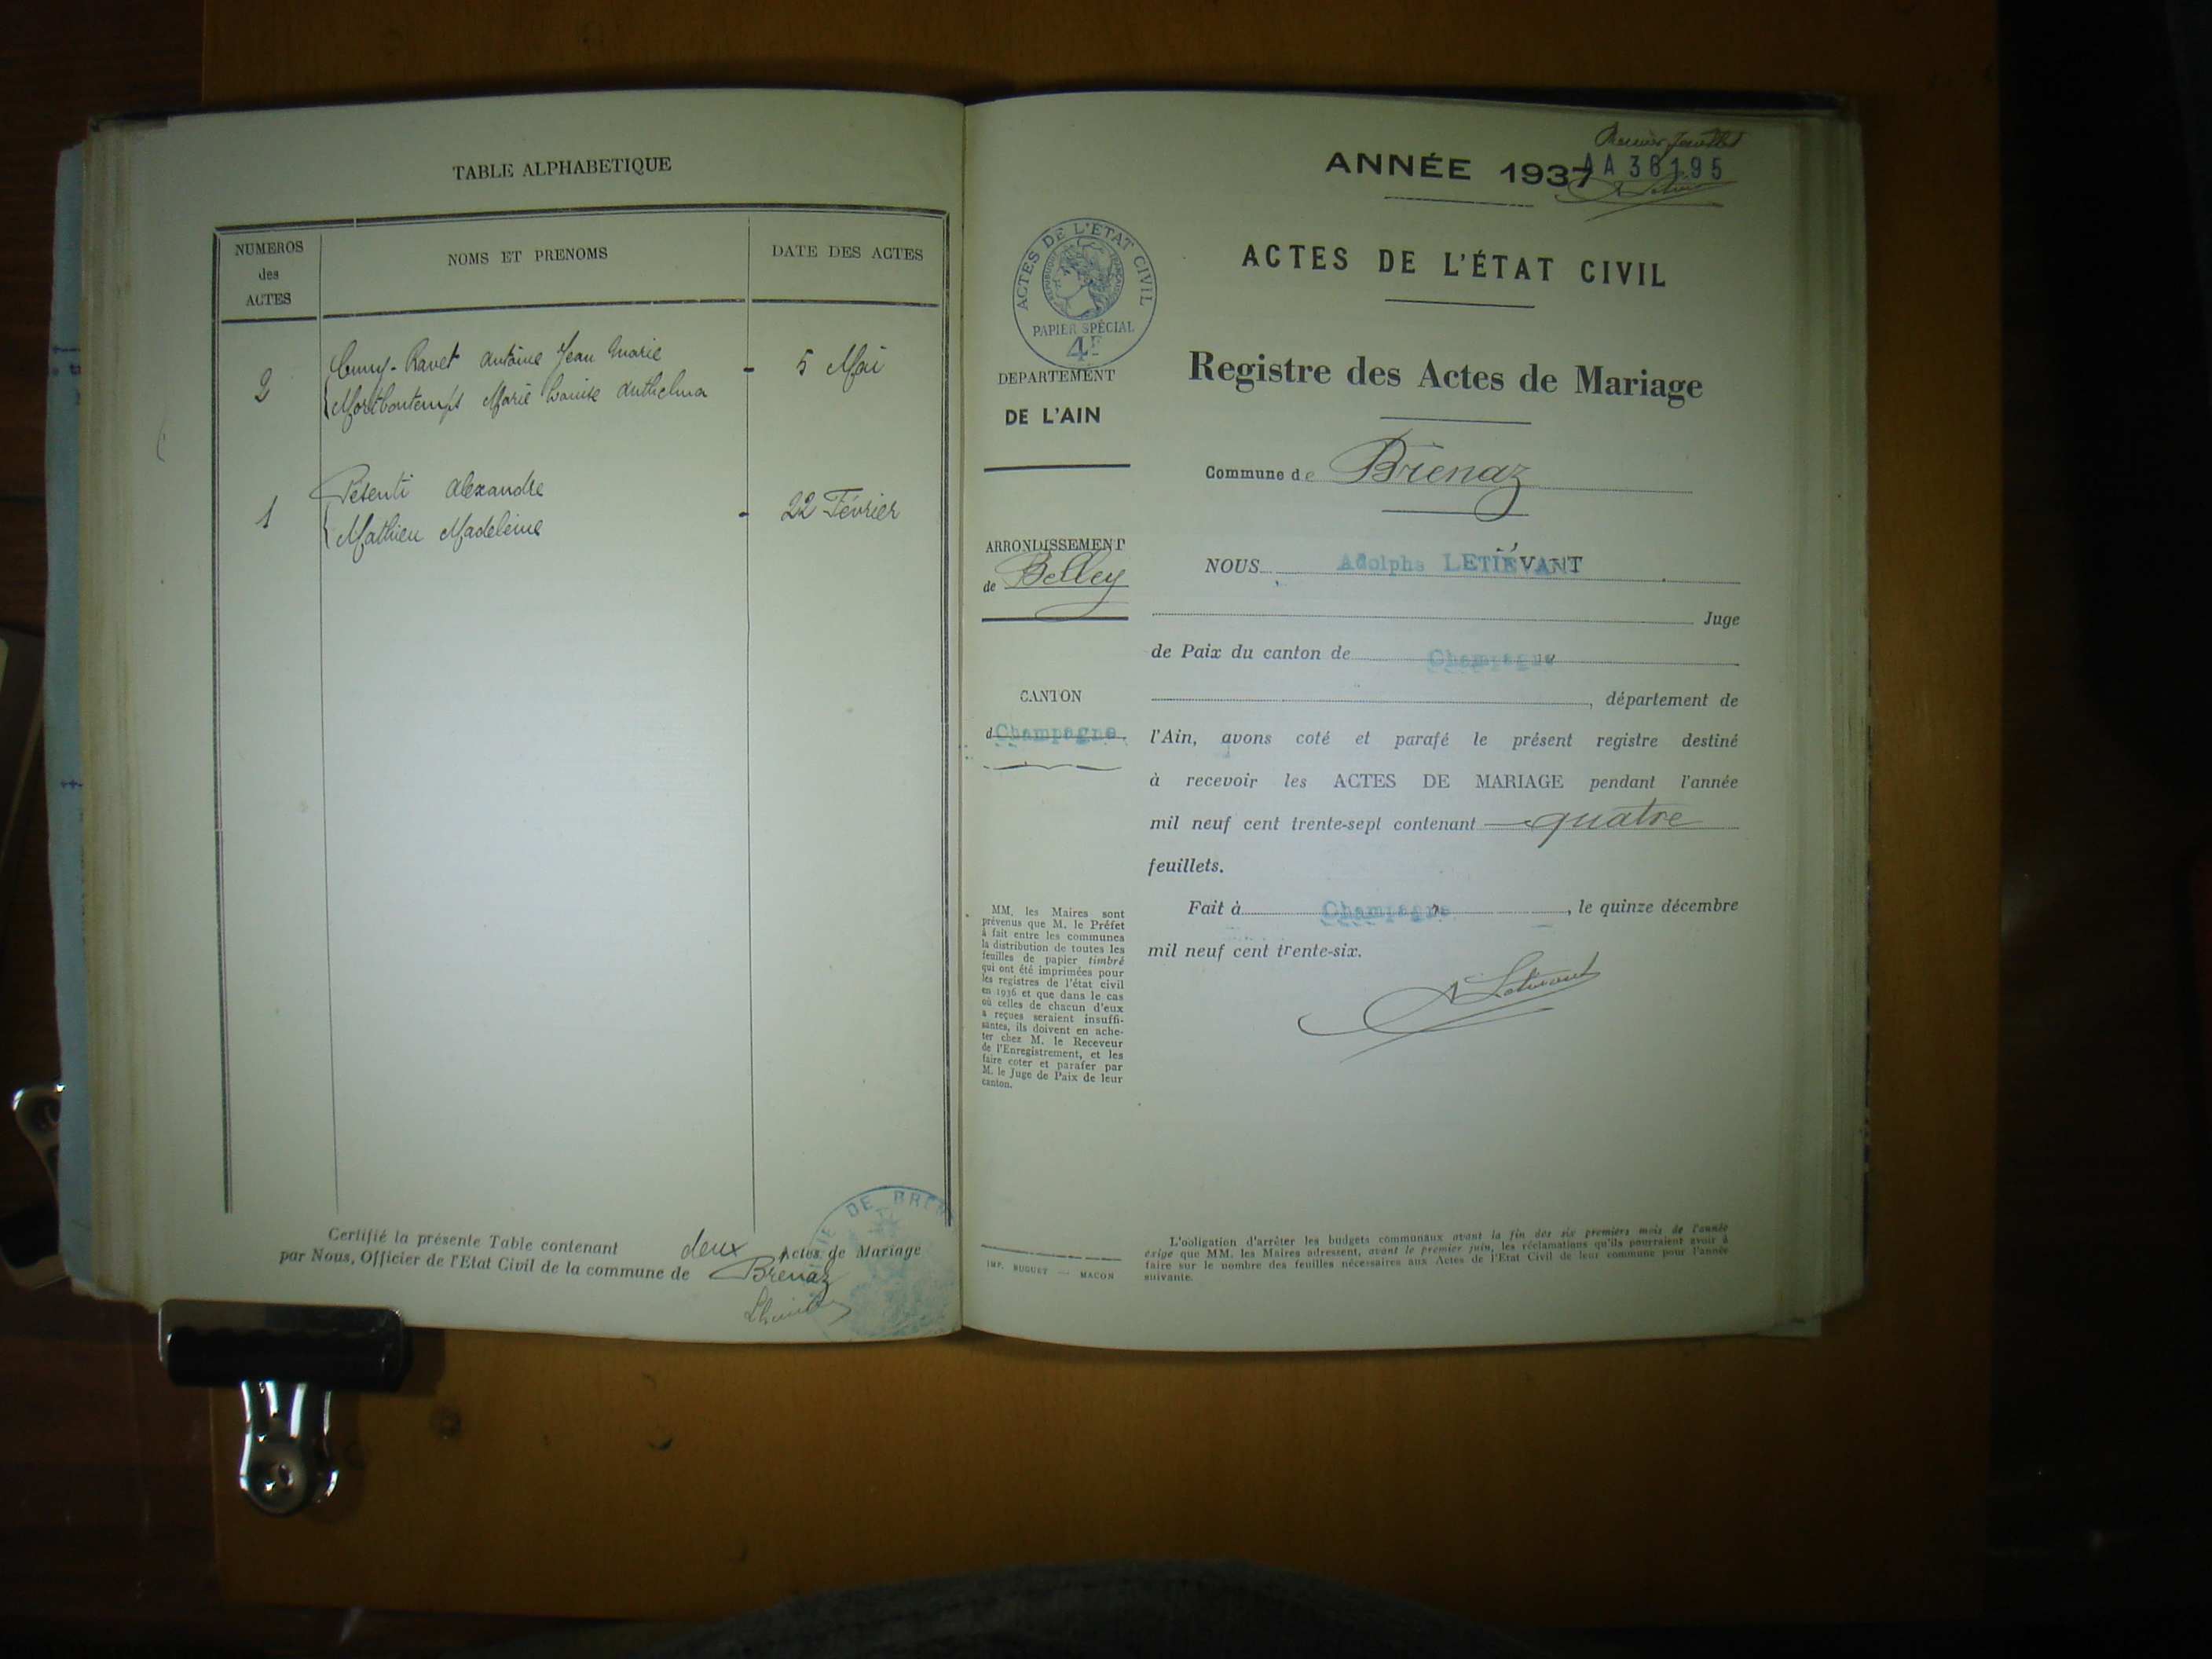 TABLE ALPHABETIQUE
NUMEROS
des
ACTES
NOMS ET PRENOMS
DATE DES ACTES
2
Cuny-Ravet Antoine Jean Marie
Montbontemps Marie Louise Anthelma
- 5 Mai
1
Pesenti Alexandre
Mathieu Madeleine
- 22 Février
Certifié la présente Table contenant deux Actes de Mariage
par Nous, Officier de l'Etat Civil de la commune de Brénaz
DE BREN
Premier feuillet
ANNÉE 1937
AA 36195
ACTES DE L'ÉTAT CIVIL
PAPIER SPÉCIAL
4F
DEPARTEMENT
DE L'AIN
ARRONDISSEMENT
de Belley
CANTON
d Champagne
MM. les Maires sont
prévenus que M. le Préfet
à fait entre les communes
la distribution de toutes les
feuilles de papier timbré
qui ont été imprimées pour
les registres de l'état civil
en 1936 et que dans le cas
où celles de chacun d'eux
a reçues seraient insuffi-
santes, ils doivent en ache-
ter chez M. le Receveur
de l'Enregistrement, et les
faire coter et parafer par
M. le Juge de Paix de leur
canton.
IMP. BUGUET — MACON
ACTES DE L'ÉTAT CIVIL
Registre des Actes de Mariage
Commune de Brénaz
NOUS Adolphe LETIÉVANT
Juge
de Paix du canton de Champagne
, département de
l'Ain, avons coté et parafé le présent registre destiné
à recevoir les ACTES DE MARIAGE pendant l'année
mil neuf cent trente-sept contenant quatre
feuillets.
Fait à Champagne, le quinze décembre
mil neuf cent trente-six.
A Letiévant
L'obligation d'arrêter les budgets communaux avant la fin des six premiers mois de l'année
exige que MM. les Maires adressent, avant le premier juin, les réclamations qu'ils pourraient avoir à
faire sur le nombre des feuilles nécessaires aux Actes de l'Etat Civil de leur commune pour l'année
suivante.